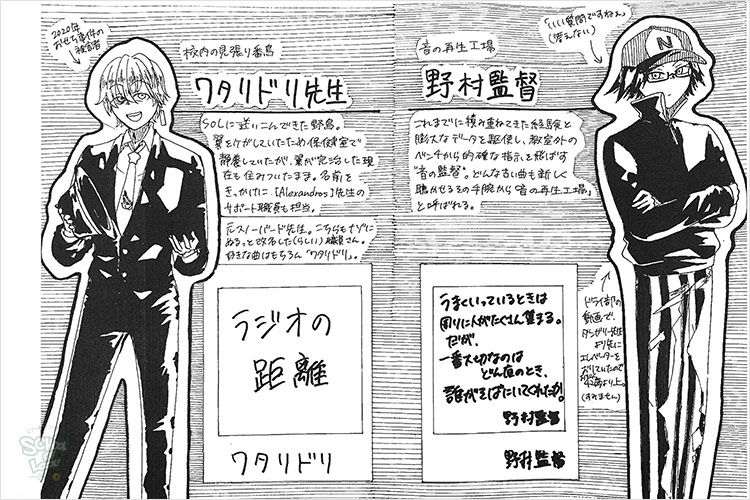 2020年
おせち事件の
被害者
校内の見張り番鳥
ワタリドリ先生
SOLに迷いこんできた野鳥。
翼をけがしていたため保健室で
静養していたが、翼が完治した現
在も住みついたまま。名前を
きっかけに[Alexandros]先生の
サポート職員も担当。
元スノーバード先生。こちらもナゾに
ぬるっと改名した(らしい)職員さん。
好きな曲はもちろん「ワタリドリ」。
ラジオの
距離
ワタリドリ
「いい質問ですねぇ」
(答えない)
音の再生工場
野村監督
これまでに積み重ねてきた経験と
膨大なデータを駆使し、教室外の
ベンチから的確な指示を飛ばす
"音の監督"。どんな古い曲も新しく
聴かせるその手腕から「音の再生工場」
と呼ばれる。
うまくいっているときは
周りに人がたくさん集まる。
だが、
一番大切なのは
どん底のとき、
誰がそばにいてくれたか。
野村監督
野村監督
ドライ部の
動画で、
より先に
エレベーターを
おりていたので
(すみません)